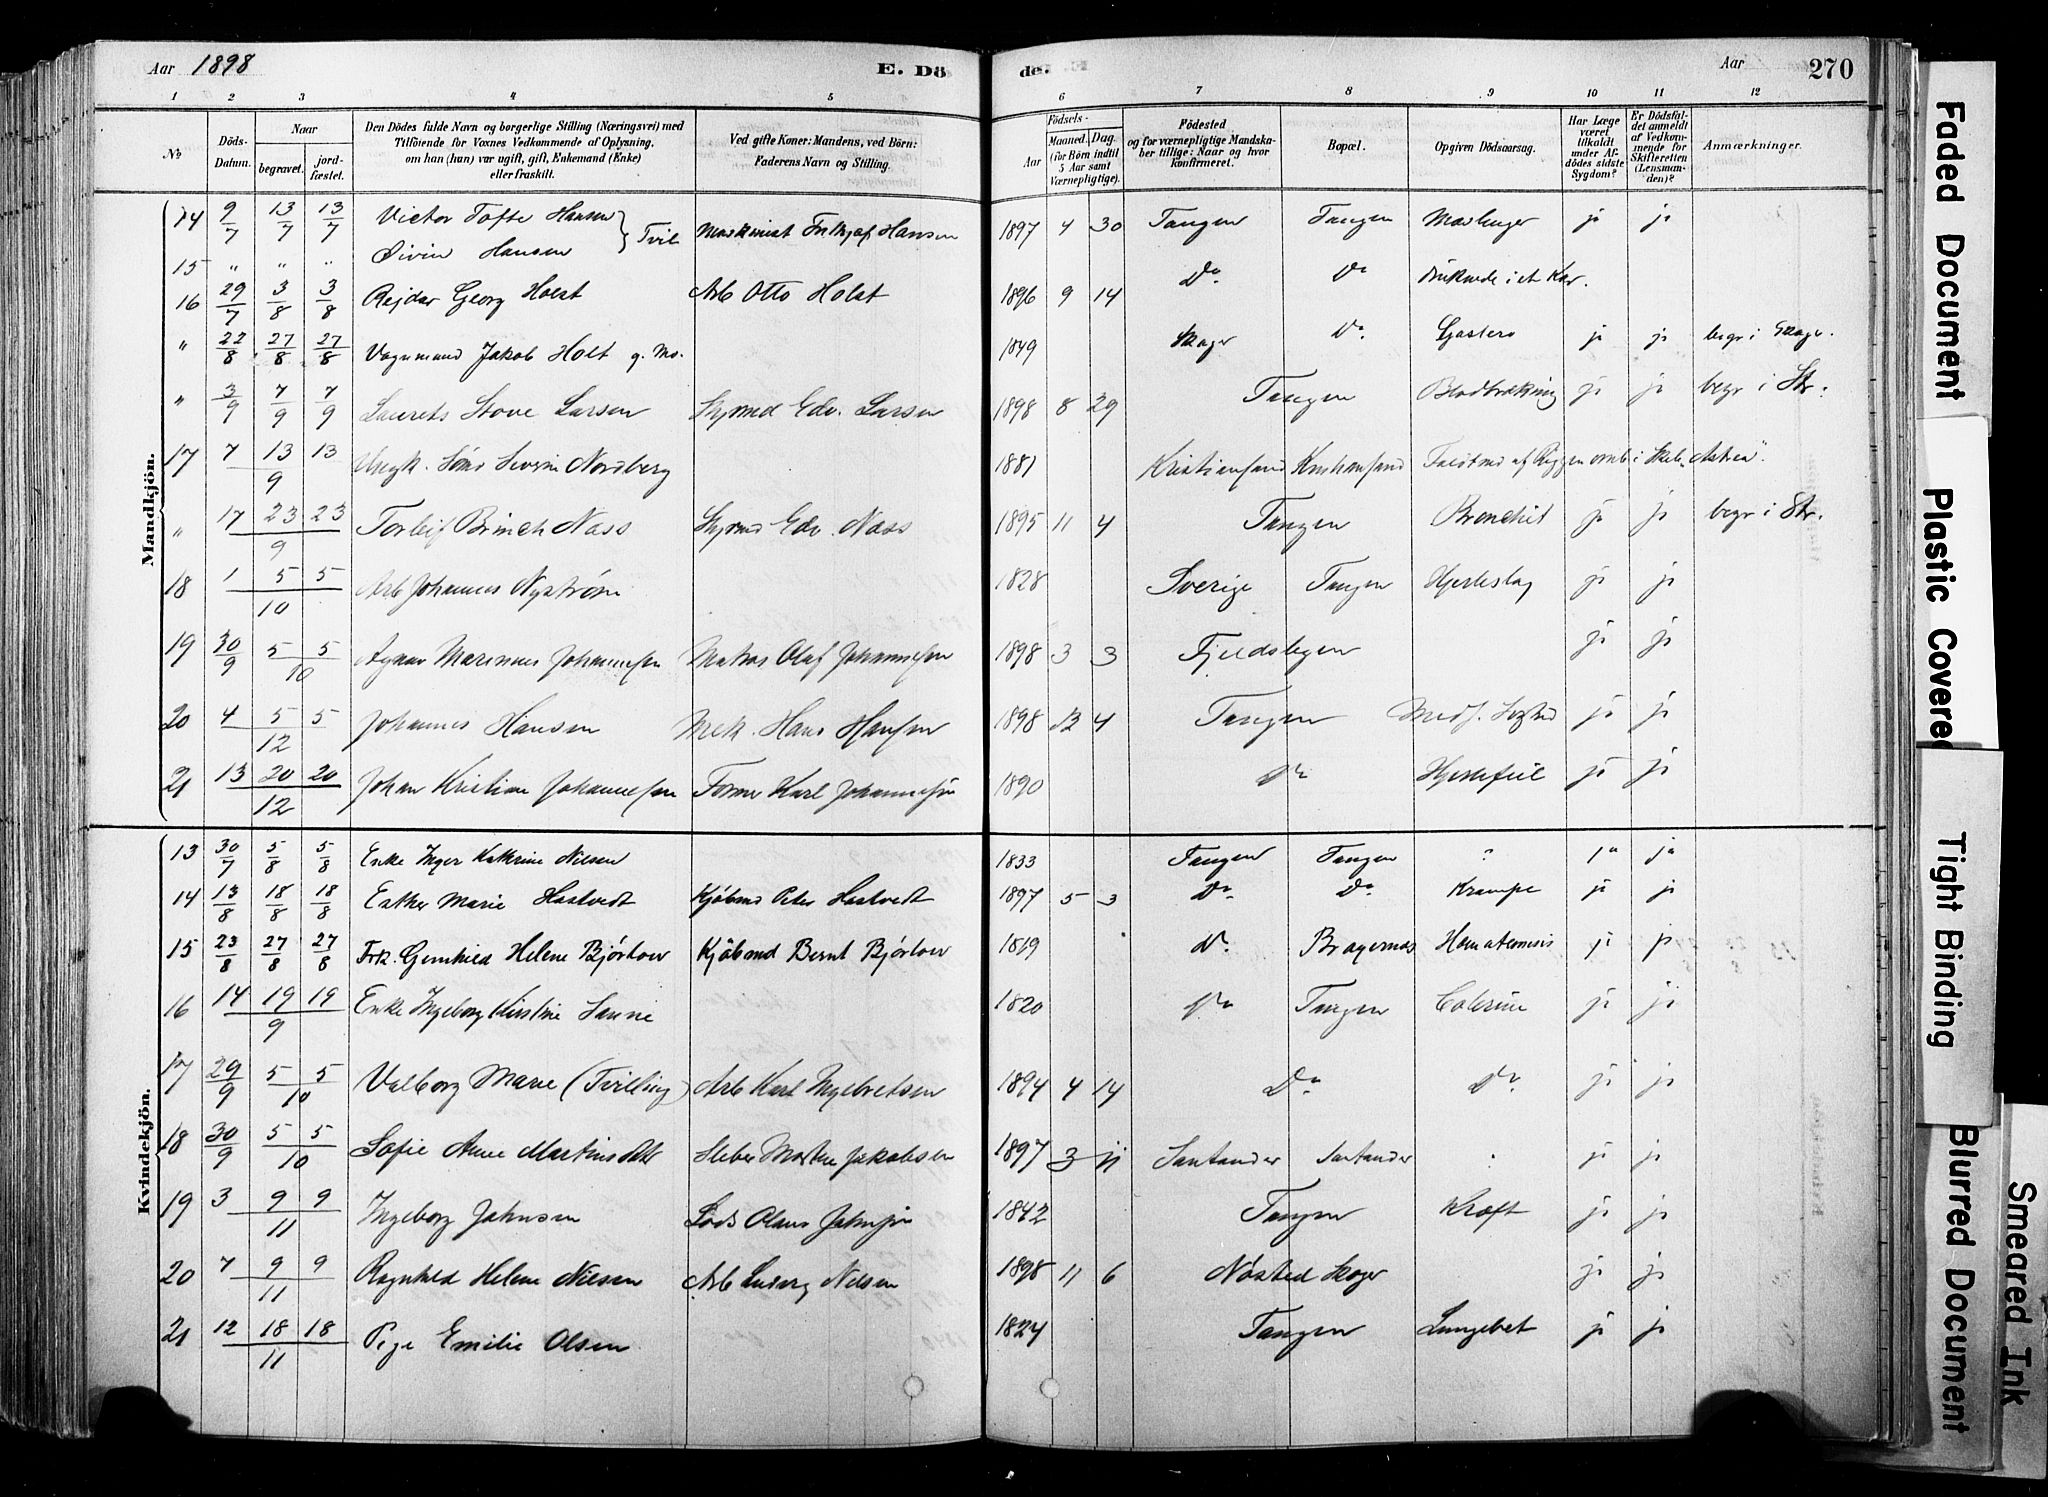 Aar 1898 E. Dö de. Aar 270
1 2 3 4 5 6 7 8 9 10 11 12
No Döds-Datum. Naar begravet. jord-fæstet. Den Dödes fulde Navn og borgerlige Stilling (Næringsvei) med Tilföiende for Voxnes Vedkommende af Oplysning, om han (hun) var ugift, gift, Enkemand (Enke) eller fraskilt. Ved gifte Koner: Mandens, ved Börn: Faderens Navn og Stilling. Födsels- Aar Maaned. Dag. (for Börn indtil 5 Aar samt Værnepligtige). Födested og for værnepligtige Mandskaber tillige: Naar og hvor konfirmeret. Bopæl. Opgiven Dödsaarsag. Har Læge været tilkaldt under Afdödes sidste Sygdom? Er Dödsfaldet anmeldt af Vedkommende for Skifteretten (Lensmanden)? Anmærkninger.
Mandkjön.
14 9/7 13/7 13/7 Victor Tofte Hansen } Tvil Maskinist Fritjof Hansen 1897 4 30 Tangen Tangen Mæslinger ja ja
15 " " " Eivin Hansen Do Do
16 29/7 3/8 3/8 Rejdar Georg Holst Arb Otto Holst 1896 9 14 Druknede i et Kar.
" 22/8 27/8 27/8 Vognmand Jakob Holt g. M. 1849 Skoger Do ja ja begr i Skoger.
" 3/9 7/9 7/9 Laurets Stove Larsen Styrmd Edv. Larsen 1898 8 29 Tangen Blodbrækning ja ja begr i Str.
17 7 13 13 /9 Ungk. Severin Nordberg 1881 Kristiansand Kristiansand
" 17 23 23 /9 Torleif Brinch Næss Styrmd Edv. Næss 1895 11 4 Tangen Bronchit ja ja begr i Str.
18 1 5 5 /10 Arb Johannes Nyström 1828 Sverige Tangen Hjerteslag ja ja
19 30/9 5 5 /10 Marinius Johannesen Matros Olaf Johannessen 1898 3 3 Fjeldsbyen ja ja
20 4 5 5 /12 Johannes Hansen Mek. Hans Hansen 1898 12 4 Tangen Medf. ja ja
21 13 20 20 /12 Johan Kristian Johannesen Former Karl Johannesen 1890 Do Hjertefeil ja ja
Kvindekjön.
13 30/7 5/8 5/8 Enke Inger Kathrine Nilsen 1833 Tangen Tangen ? ja ja
14 13/8 18/8 18/8 Esther Marie Hastvedt Kjöbmd Peter Hastvedt 1897 5 3 Do Do Krampe ja ja
15 23/8 27/8 27/8 Frk. Gunhild Helene Björlow Kjöbmd Bernt Björlow 1819 Do Bragernæs Hæmatemesis ja ja
16 14 19 19 /9 Enke Ingeborg Kirstine Sanne 1820 Do Tangen Colerine ja ja
17 29/9 5 5 /10 Valborg Marie (Tvilling) Arb Karl Ingebretsen 1894 4 14 Do Do ja ja
18 30/9 5 5 /10 Sofie Anne Martinsdtr Morten Jakobsen 1897 3 Santander Santander ja ja
19 3 9 9 /11 Ingeborg Johnsen Lods Olaus Johnsen 1842 Tangen Kræft ja ja
20 7 9 9 /11 Ragnhild Helene Nilsen Arb Ludvig Nilsen 1898 11 6 Nøsted Skoger ja ja
21 12 18 18 /11 Pige Emilie Olsen 1824 Tangen Lungebet ja ja
Faded Document
Plastic Covered
Tight Binding
Blurred Document
Smeared Ink